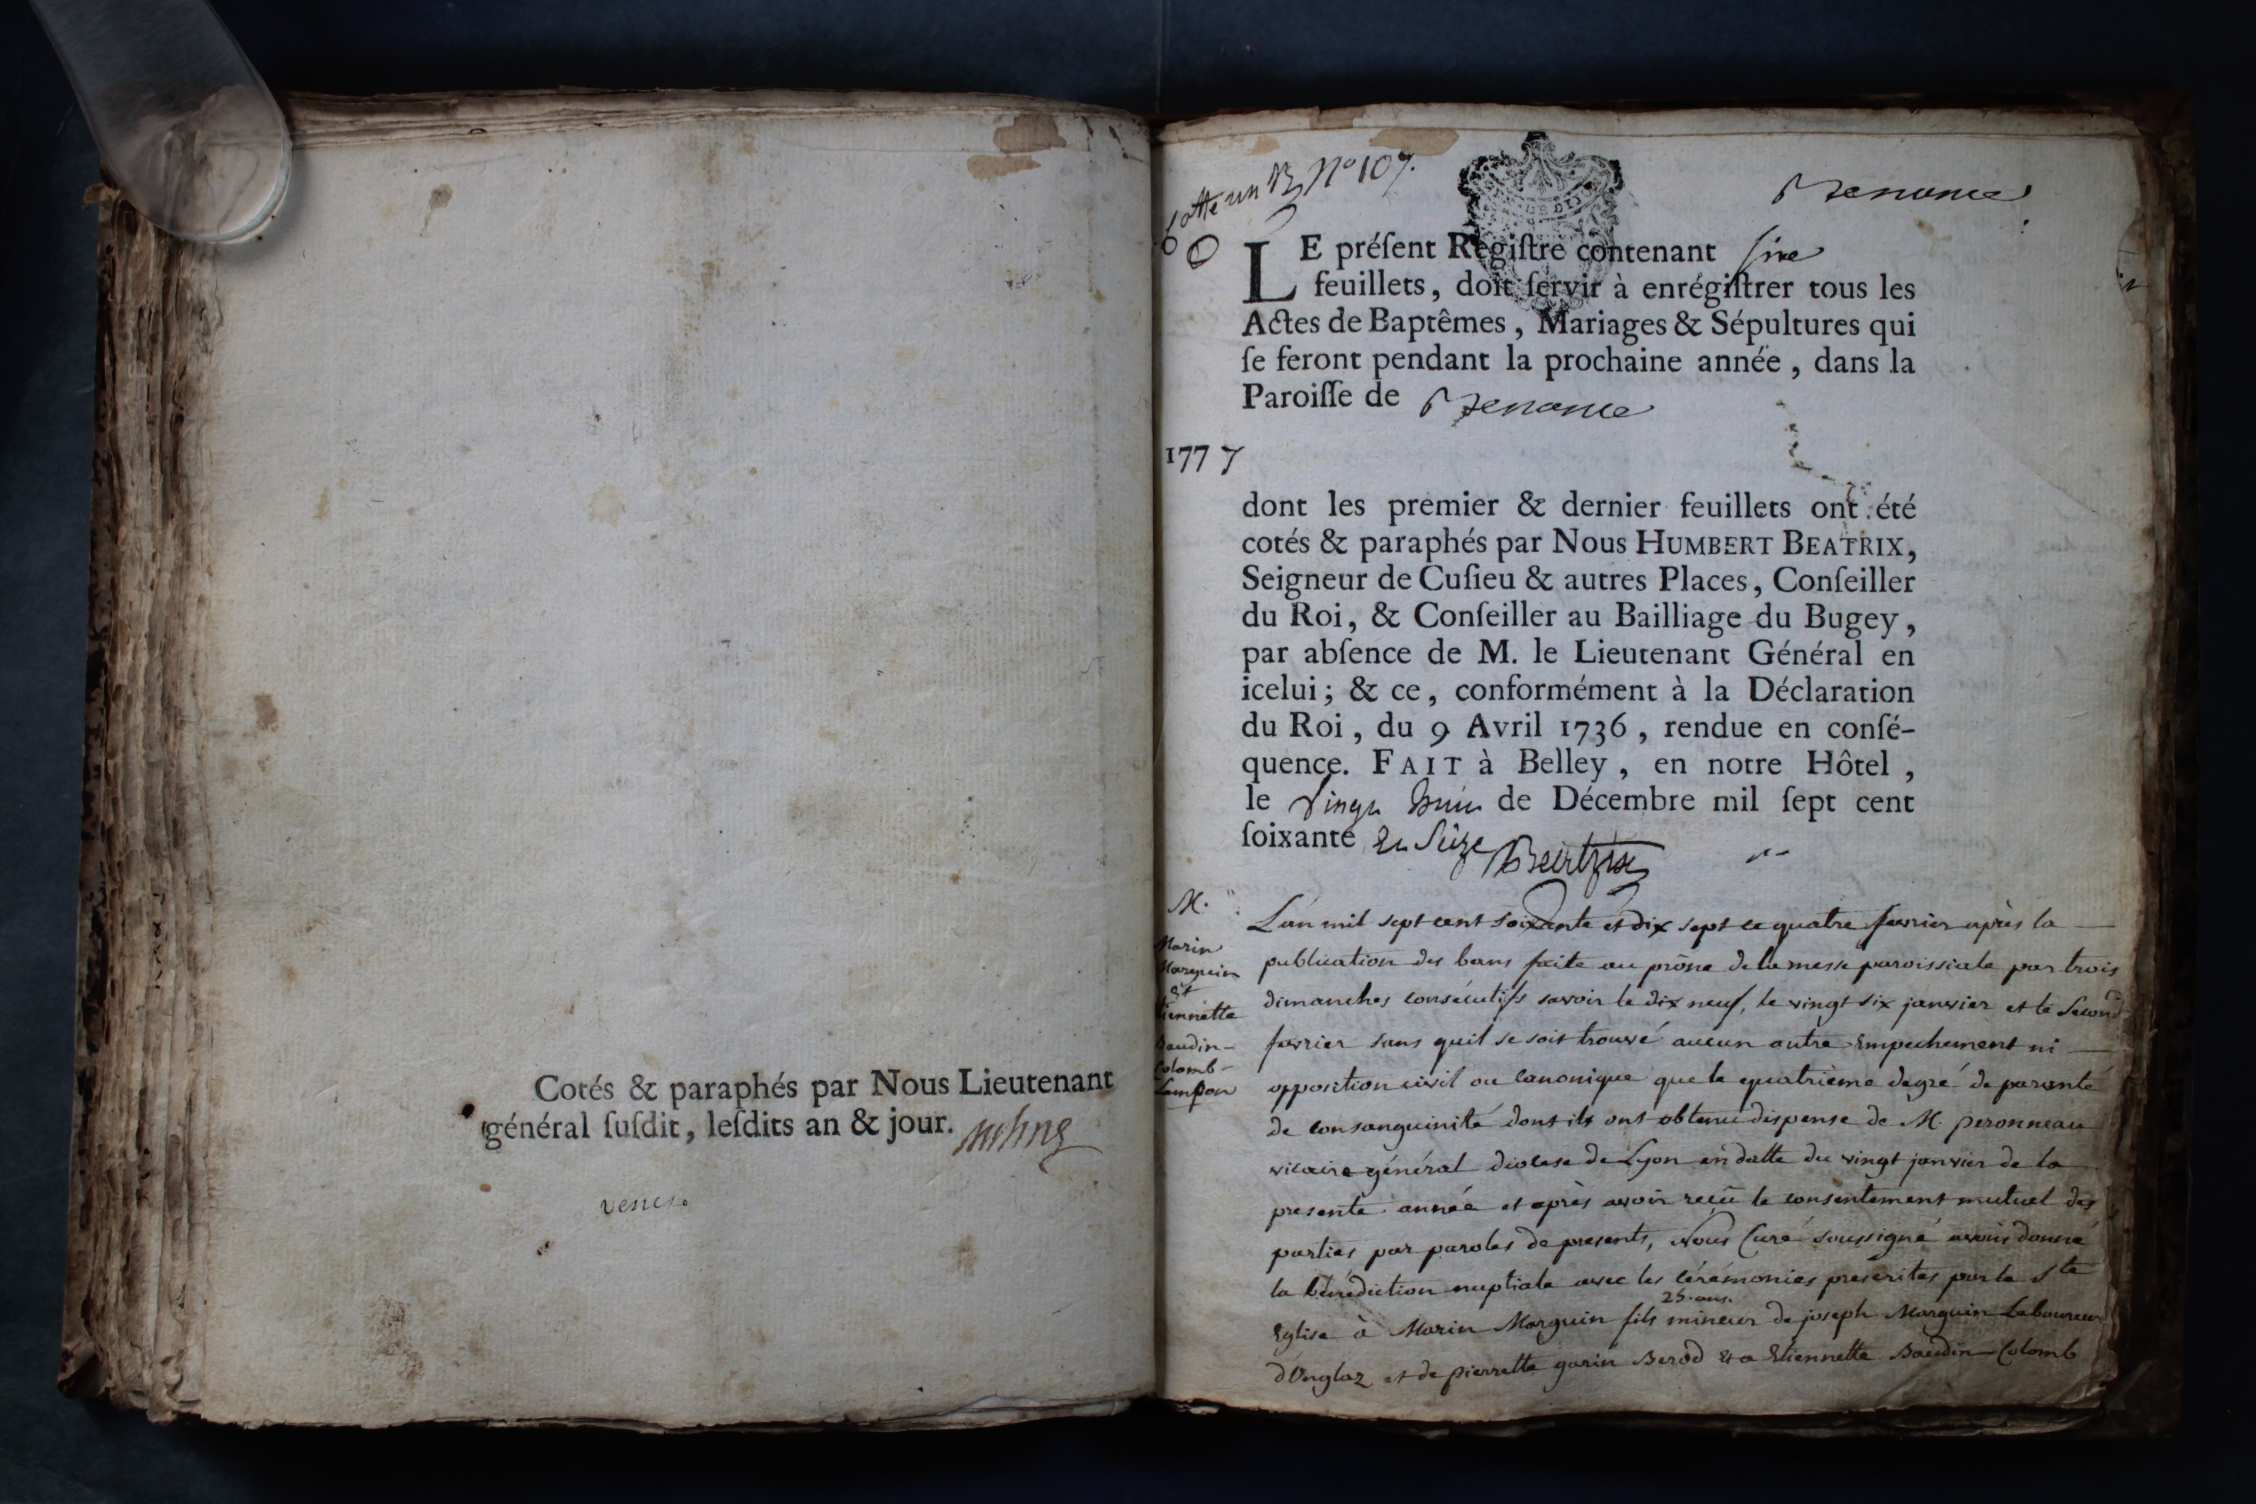 Cotés & paraphés par Nous Lieutenant
général ſuſdit, leſdits an & jour.
Cotte un N° 107.
Brenance
LE préſent Regiſtre contenant ſix
feuillets, doit ſervir à enrégiſtrer tous les
Actes de Baptêmes, Mariages & Sépultures qui
ſe feront pendant la prochaine année, dans la
Paroiſſe de
1777
dont les premier & dernier feuillets ont été
cotés & paraphés par Nous HUMBERT BEATRIX,
Seigneur de Cuſieu & autres Places, Conſeiller
du Roi, & Conſeiller au Bailliage du Bugey,
par abſence de M. le Lieutenant Général en
icelui; & ce, conformément à la Déclaration
du Roi, du 9 Avril 1736, rendue en conſé-
quence. FAIT à Belley, en notre Hôtel,
le vingt huit de Décembre mil ſept cent
ſoixante et Seize Beatrix
M.
Marin
Marguin
et
Etiennette
Baudin-
Colomb-
Lampon
L'an mil sept cent soixante et dix sept le quatre fevrier après la
publication des bans faite au prône de la messe paroissiale par trois
dimanches consécutifs savoir le dix neuf, le vingt six janvier et le second
fevrier sans quil se soit trouvé aucun autre Empechement ni
opposition civil ou canonique que le quatrième degré de parenté
de consanguinité dont ils ont obtenu dispense de M. peronneau
vicaire général diocese de Lyon en datte du vingt janvier de la
presente année et après avoir reçu le consentement mutuel des
parties par paroles de presents, Nous Curé soussigné avons donné
la bénédiction nuptiale avec les cérémonies prescrites par la Ste
25. ans.
Eglise à Marin Marguin fils mineur de joseph Marguin Laboureur
d'Onglaz et de pierrette garin Berod et a Etiennette Baudin-Colomb